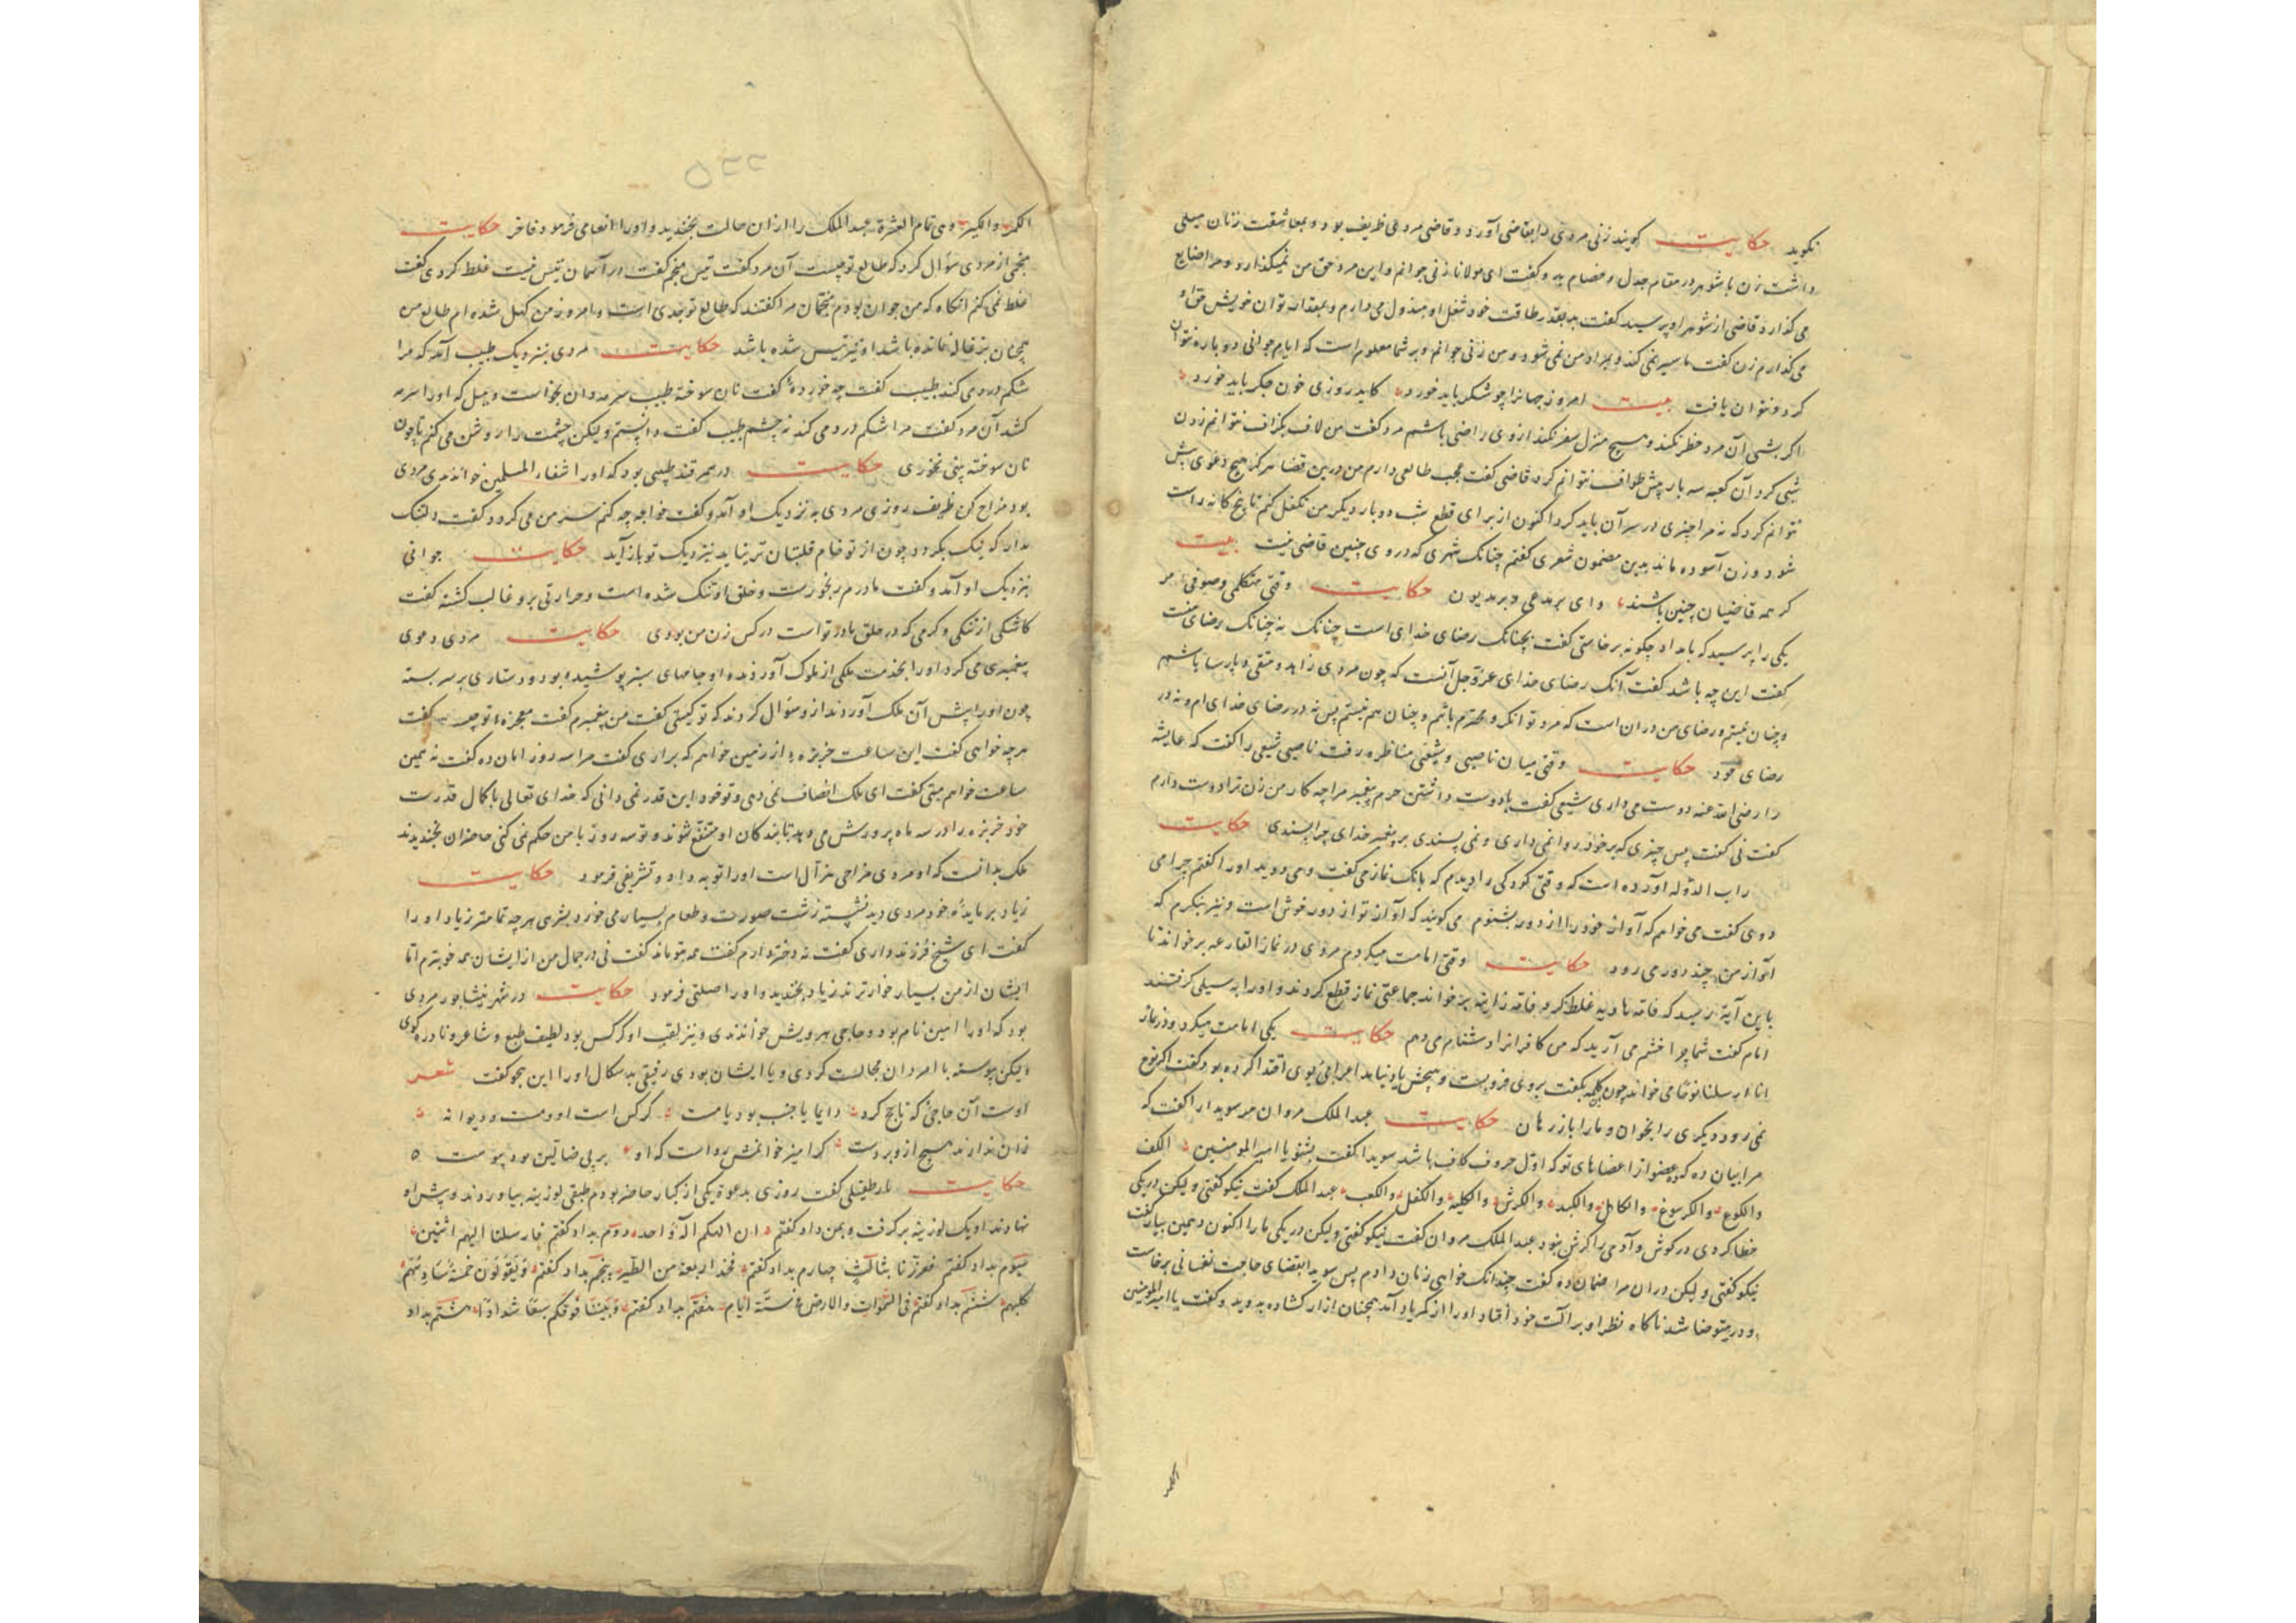 نکوید حکایت کویند زنی مردی را بقاضی آورد و قاضی مردی ظریف بود و بمعاشقت زنان میلی
داشت زن با شوهر در مقام جدل و خصام بد و کفت ای مولانا زنی جوانم و این مرد حق من نمیکذارد و مرا ضایع
می کذارد قاضی از شوهر او پرسید کفت بدبقدر طاقت خود شغل او مبذول می دارم و بمقدار توان خویش حق او
می کذارم زن کفت ما سیر نمی کند و بمراد من نمی شود و من زنی جوانم و بر شما معلوم است که ایام جوانی دوباره نتوان
کرد و نتوان یافت بیت امروز جهانرا چو شکر باید خورد کاید روزی خون جکر باید خورد
اکر بشبی آن مرد خطر نکند و هیچ منزل سفر نکند ازوی راضی باشم مرد کفت من لاف بکزاف نتوانم زدن
شبی کرد آن کعبه سه بار بیش طواف نتوانم کرد قاضی کفت عجب طالعی دارم من درین قضا هرکز هیچ دعوی پیش
نتوانم کرد که نه مرا چیزی در سر آن باید کرد اکنون از برای قطع شب دو بار دیکر من تکفل کنم تا پنج کانه راست
شود و زن آسوده ماند بدین مضمون شعری کفتم چنانک شهری که دروی چنین قاضی نیست بیت
کر همه قاضیان چنین باشند وای بر مدعی و بر مدیون حکایت وقتی متکلمی و صوفی مر
یکی را پرسید که بامداد چکونه برخاستی کفت بچنانک رضای خدای است چنانک نه چنانک رضای منست
کفت این چه باشد کفت آنک رضای خدای عز و جل آنست که چون مردی زاهد و متقی و پارسا باشم
و چنان نیستم و رضای من دران است که مرد توانکر و محترم باشم و چنان هم نیستم پس نه در رضای خدای ام و نه در
رضای خود حکایت وقتی میان ناصبی و شیعی مناظره رفت ناصبی شیعی را کفت که عایشه
را رضی الله عنه دوست می داری شیعی کفت بادوست داشتن حرم پیغمبر مرا چه کار من زن ترا دوست دارم
کفت نی کفت پس چیزی که بر خود روا نمی داری و نمی پسندی بر پیغمبر خدای چرا پسندی حکایت
راب الدوله آورده است که وقتی کودکی را دیدم که بانک نماز می کفت و می دوید او را کفتم چرا می
دوی کفت می خواهم که آواز خود را از دور بشنوم می کویند که آواز تو از دور خوش است و نیز بنکرم که
آواز من چند دور می رود حکایت وقتی امامت میکردم مردی در نماز القارعه برخواند تا
باین آیة رسید که فامه هاویه غلط کرد فامه زانیه برخواند جماعتی نماز قطع کردند و او را به سیلی کرفتند
امام کفت شما چرا خشم می آرید که من کافرانرا دشنام می دهم حکایت یکی امامت میکرد و در نماز
انا ارسلنا نوحا می خواند چون کلمه بکفت بروی فروبست و هیچش یاد نیامد اعرابئی بوی اقتدا کرده بود کفت اکر نوح
نمی رود دیکری را بخوان و ما را باز رهان حکایت عبد الملک مروان مر سوید را کفت که
مرا بیان ده که عضو از اعضاهای تو که اول حروف کاف باشد سوید کفت بشنو یا امیر المومنین الکف
والکوع والکرسوغ والکاهل والکبد والکرش والکلیة والکفل والکعب عبد الملک کفت نیکو کفتی و لیکن در یکی
خطا کردی در کوش و آدمی را کرش نبود عبد الملک مروان کفت نیکو کفتی و لیکن در یکی ما را اکنون دهمین بیار کفت
نیکو کفتی و لیکن دران مرا ضمان ده کفت چندانک خواهی زمان دادم پس سوید باقتضای حاجت نفسانی برخاست
و در متوضا شد ناکاه نظر او بر آلت خود افتاد او را از کمر یاد آمد همچنان ازار کشاده بدوید و کفت یا امیر المومنین
الکمر
۵۲۲
الکمر والکیر وهی تمام العشرة عبد الملک را ازان حالت بخندید و او را انعامی فرمود فاخر حکایت
منجمی از مردی سؤال کرد که طالع تو چیست آن مرد کفت تیس منجم کفت در آسمان تیس نیست غلط کردی کفت
غلط نمی کنم انکاه که من جوان بودم منجمان مرا کفتند که طالع تو جدی است و امروز من کهل شده ام طالع من
همچنان بزغاله نمانده باشد او نیز تیس شده باشد حکایت مردی بنزدیک طبیب آمد که مرا
شکم درد می کند طبیب کفت چه خوردۀ کفت نان سوخته طبیب سرمه دان بخواست و میل که او را سرمه
کشد آن مرد کفت مرا شکم درد می کند نه چشم طبیب کفت دانستم و لیکن چشمت را روشن می کنم تا چون
نان سوخته بینی نخوری حکایت در سمرقند طبیبی بود که او را شفاء المسلمین خواندندی مردی
بود مزاح کن ظریف روزی مردی به نزدیک او آمد و کفت خواجه چه کنم سر من می کردد کفت دلتنک
مدار که نیک بکردد چون از تو خام قلتبان تر نیابد نزدیک تو باز آید حکایت جوانی
بنزدیک او آمد و کفت مادرم رنجورست و خلق او تنک شده است و حرارتی برو غالب کشته کفت
کاشکی از تنکی و کرمی که در حلق مادر تو است در کس زن من بودی حکایت مردی دعوی
پیغمبری می کرد او را بخدمت ملکی از ملوک آوردند و او جامهای سبز پوشیده بود و دستاری بر سر بسته
چون او را پیش آن ملک آوردند ازو سؤال کردند که تو کیستی کفت من پیغمبرم کفت معجزه تو چیست کفت
هر چه خواهی کفت این ساعت خربزه از زمین خواهم که براری کفت مرا سه روز امان ده کفت نه همین
ساعت خواهم متنبی کفت ای ملک انصاف نمی دهی و تو خود این قدر نمی دانی که خدای تعالی باکمال قدرت
خود خربزه را در سه ماه پرورش می دهد تا بندکان او منتفع شوند و تو سه روز با من حکم نمی کنی حاضران بخندیدند
ملک بدانست که او مردی مزاحی هزال است او را توبه داد و تشریفی فرمود حکایت
زیاد بر مایدۀ خود مردی دید نشسته زشت صورت و طعام بسیار می خورد بشرهی هر چه تمامتر زیاد او را
کفت ای شیخ فرزند داری کفت نه دختر دارم کفت همه بتو ماند کفت نی در جمال من از ایشان همه خوبترم اما
ایشان از من بسیار خوارترند زیاد بخندید و او را صلتی فرمود حکایت در شهر نیشابور مردی
بود که او را امین نام بود و حاجی بهرویش خواندندی و نیز لقب او کرکس بود لطیف طبع و شاعر و نادره کوی
ولیکن پیوسته با امردان مجالست کردی و با ایشان بودی رفیقی بدسکال او را این هجو کفت شعر
اوست آن حاجئی که نابح کرد دایما یا جنب بود یا مست کرکس است او و مست و دیوانه
زان ندارند هیچ ازو بر دست کر امین خوانمش رواست که او بر پی ضالین بود پیوست
حکایت بار طفیلی کفت روزی بدعوة یکی از کبار حاضر بودم طبقی لوزینه بیاوردند و پیش او
نهادند او یک لوزینه برکرفت و بمن داد کفتم ان الهکم اله واحد دوم بداد کفتم فارسلنا الیهم اثنین
سیوم بداد کفتم فعززنا بثالث چهارم بداد کفتم فخذ اربعة من الطیر پنجم بداد کفتم ویقولون خمسة سادسهم
کلبهم ششم بداد کفتم فی السموات والارض فی ستة ایام هفتم بداد کفتم وبنینا فوقکم سبعا شدادا هشتم بداد